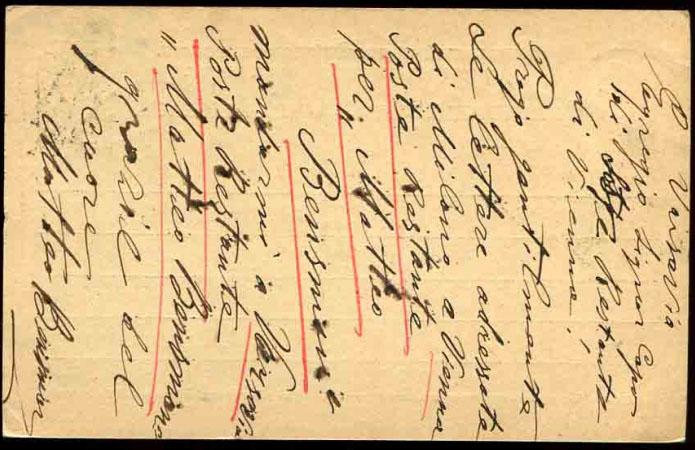 Varsavia
Egregio Signor Capo
Posta Restante
di Vienna,
Prego gentilmente
se lettere adressate
di Milano a Vienna
Posta Restante
per "Matteo
Bensman e
mandarmi a Varsavia
Posta Restante
"Matteo Bensman
grazie del
cuore
Matteo Bensman